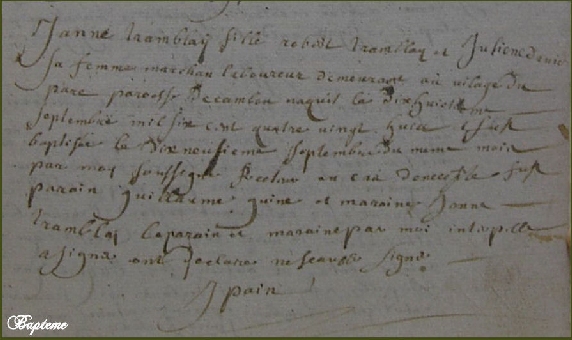 Janne tramblay fille robert tramblay et Juliene denis
sa femme marchan laboureur demeurage au vilage du
pare paroosse de cambon naquit la dixhuictieme
septembre mil six cent quatre vingt huict et fust
baptisée le dixneufieme septembre du mme mois
par moy soussigné Recteur
parain guillaume guine et maraine Janne
tramblay le parain et maraine par moi interpelle
a signer ont declare ne scavoir signe
J pain
Bapteme